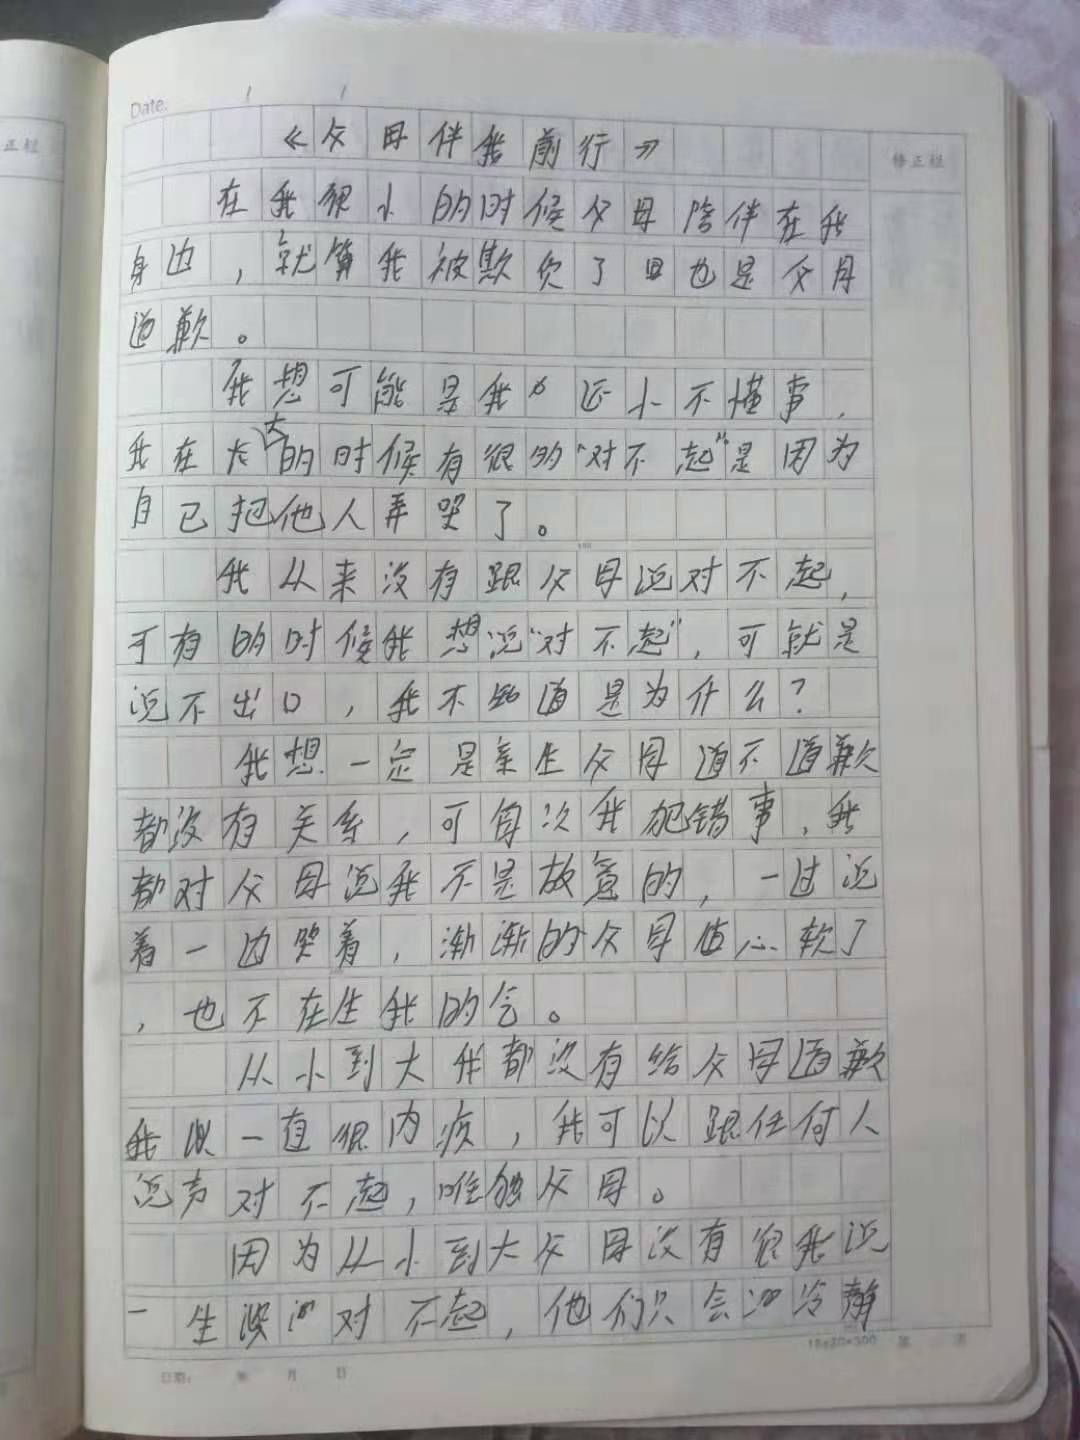 Date:
正栏
修正栏
《父母伴我前行》
在我很小的时候父母陪伴在我
身边，就算我被欺负了 也是父母
道歉。
我想可能是我 还小不懂事，
我在长大的时候有很的“对不起”是因为
自己把他人弄哭了。
我从来没有跟父母说对不起，
可有的时候我想说“对不起”，可就是
说不出口，我不知道是为什么？
我想一定是亲生父母道不道歉
都没有关系，可每次我犯错事，我
都对父母说我不是故意的，一过说
着一边哭着，渐渐的父母值心软了
，也不在生我的气。
从小到大我都没有给父母道歉
我 一直很内疚，我可以跟任何人
说声对不起，唯独父母。
因为从小到大父母没有很我说
一生 对不起，他们只会 冷静
15x20=300
日期： 年 月 日